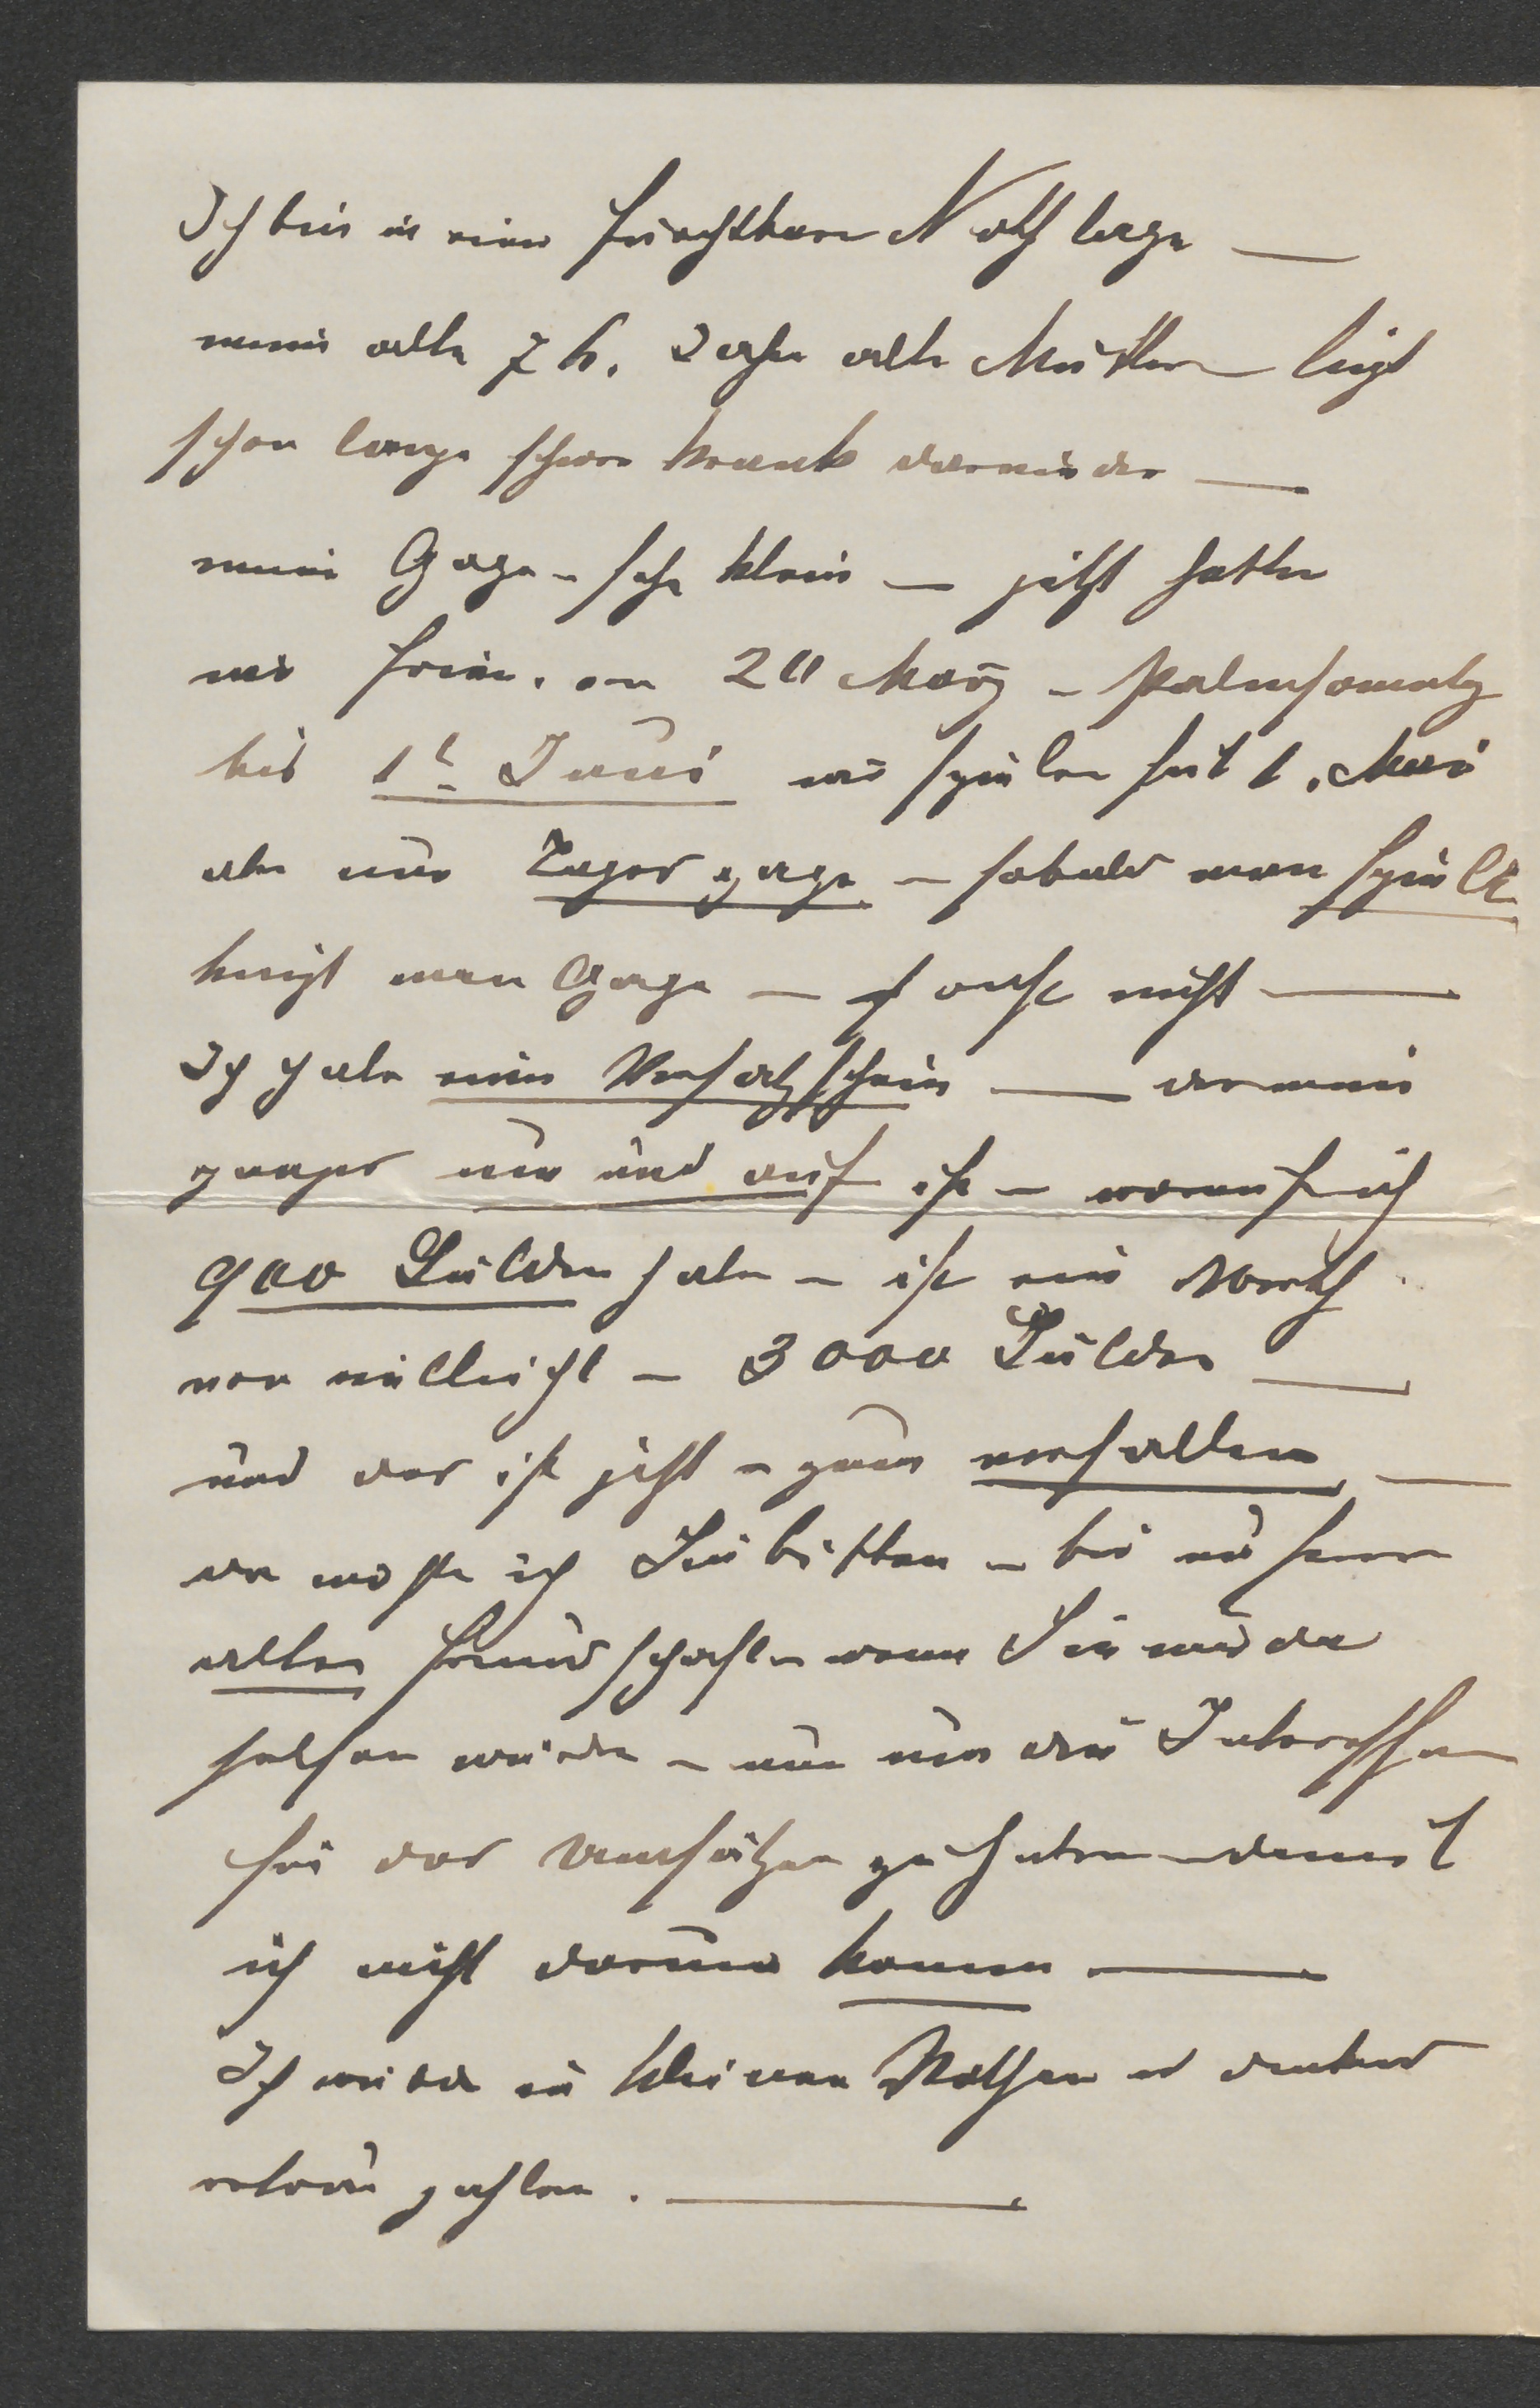 Ich bin in einer furchtbaren Nothlage —
meine alte 76. Jahre alte Mutter liegt
schon lange schwer krank darnieder —
meine Gage – sehr klein — jetzt hatten
wir Ferien. von 20 März – Palmsonntag
bis 1t. Juni wir spielen seit 1. Mai
aber nur Tages gage – sobald man spielt
kriegt man Gage — sonst nicht —
Ich habe einen Versatzschein — der mein
ganzes um und auf ist – worauf ich
900 Gulden habe – ist ein Werth
von vielleicht – 3000 Gulden —
und der ist jetzt – zum verfallen —
da möchte ich Sie bitten – bei unserer
alten Freundschaft – wenn Sie mir da
helfen würden – um nur die Interessen
für das Umsetzen zu haben – damit
ich nicht darum komme —
Ich würde in kleinen Rathen es dankend
retour zahlen. —